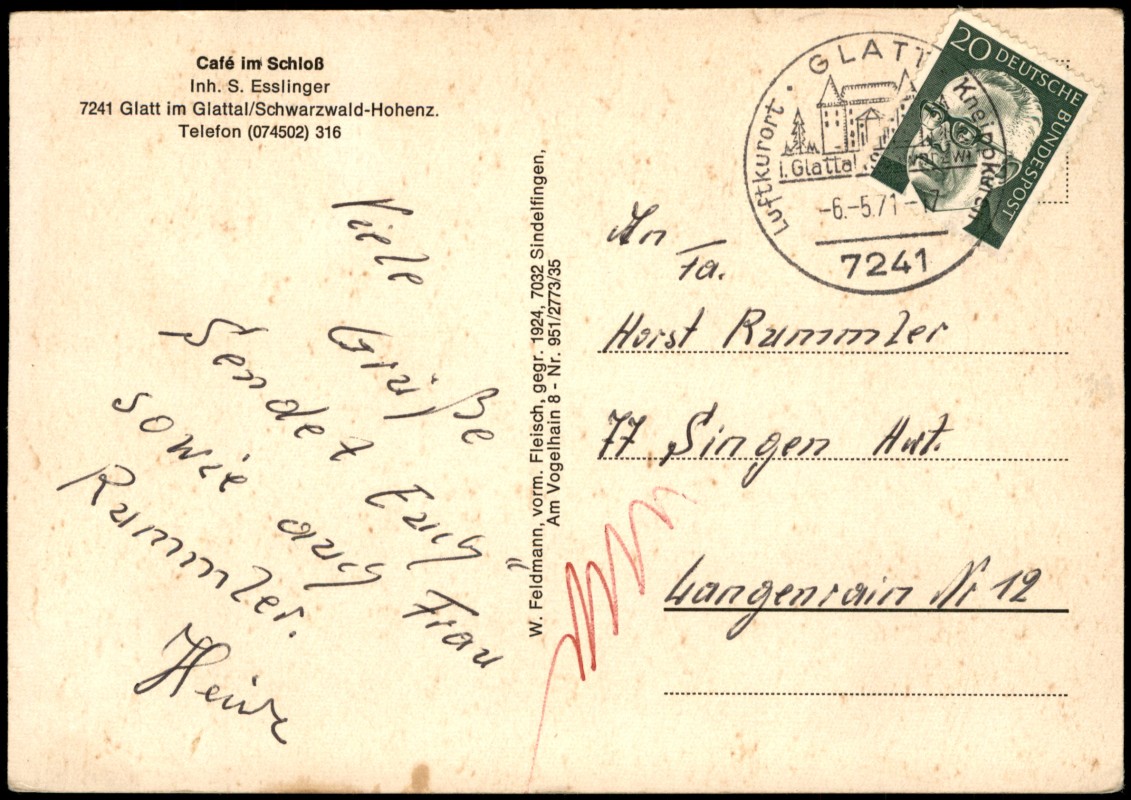 Café im Schloß
Inh. S. Esslinger
7241 Glatt im Glattal/Schwarzwald-Hohenz.
Telefon (074502) 316
Viele
Grüße
Sendet Euch
sowie auch Frau
Rummler.
W. Feldmann, vorm. Fleisch, gegr. 1924, 7032 Sindelfingen,
Am Vogelhain 8 - Nr. 951/2773/35
Luftkurort · GLATT
Kneippkuren
i. Glattal
-6.-5.71-17
7241
20 DEUTSCHE BUNDESPOST
An
Fa.
Horst Rummler
77 Singen Hwt.
Langenrain Nr 12